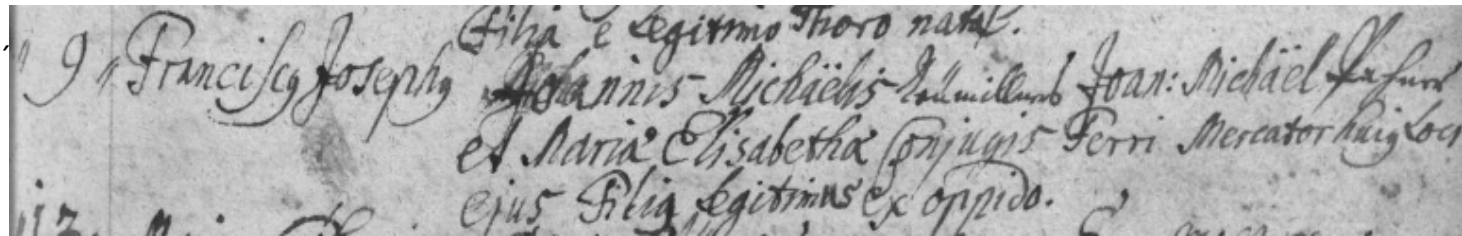 Filia e legitimo Thoro nata.
9 Franciscq Josephq Johannis Michaëlis Neümillners Joan: Michäel
et Mariæ Elisabethæ Conjugis Ferri Mercator huiq Loci
ejus Filiq legitimus ex oppido.